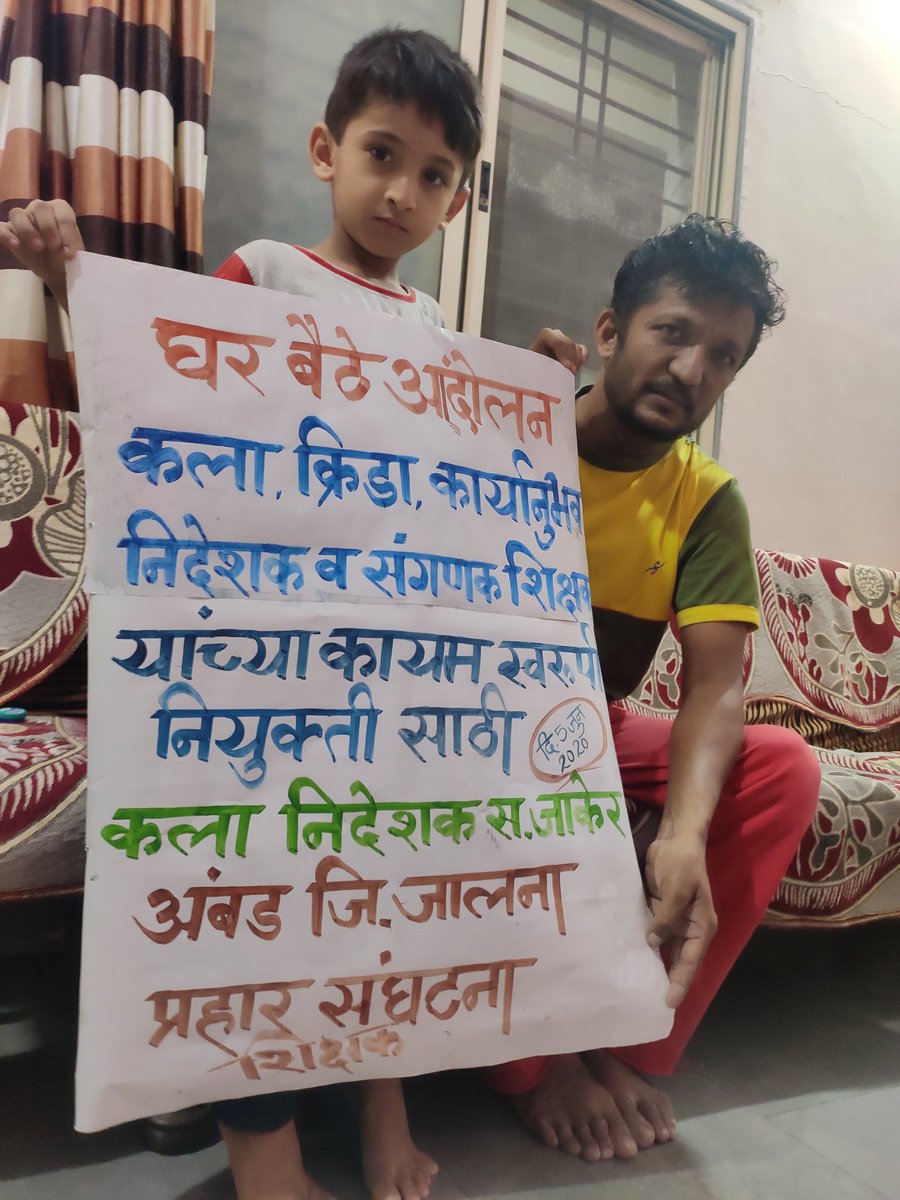 घर बैठे आंदोलन
कला, क्रिडा, कार्यानुभव
निदेशक व संगणक शिक्षक
यांच्या कायम स्वरूपी
नियुक्ती साठी
दि. 5 जुन
2020
कला निदेशक स. जाकेर
अंबड जि. जालना
प्रहार संघटना
शिक्षक